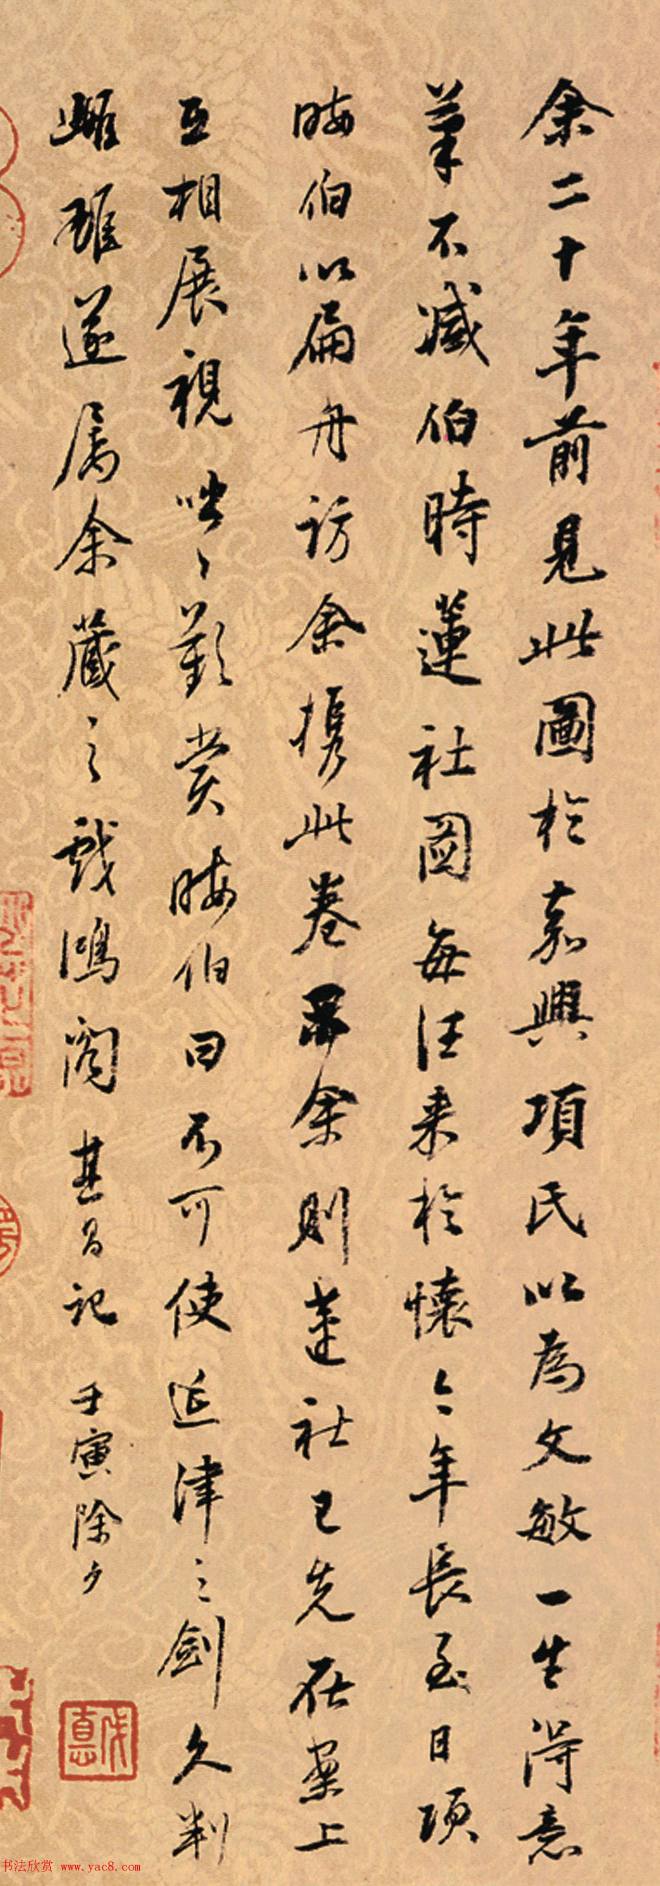 余二十年前見此圖於嘉興項氏以為文敏一生得意
筆不減伯時蓮社圖每往来於懷今年長至日項
晦伯以扁舟訪余攜此卷示余則蓮社已先在案上
互相展視咄〻歎賞晦伯曰不可使延津之劍久判
雌雄遂属余藏之戲鴻閣其昌記壬寅除夕
书法欣赏 www.yac8.com